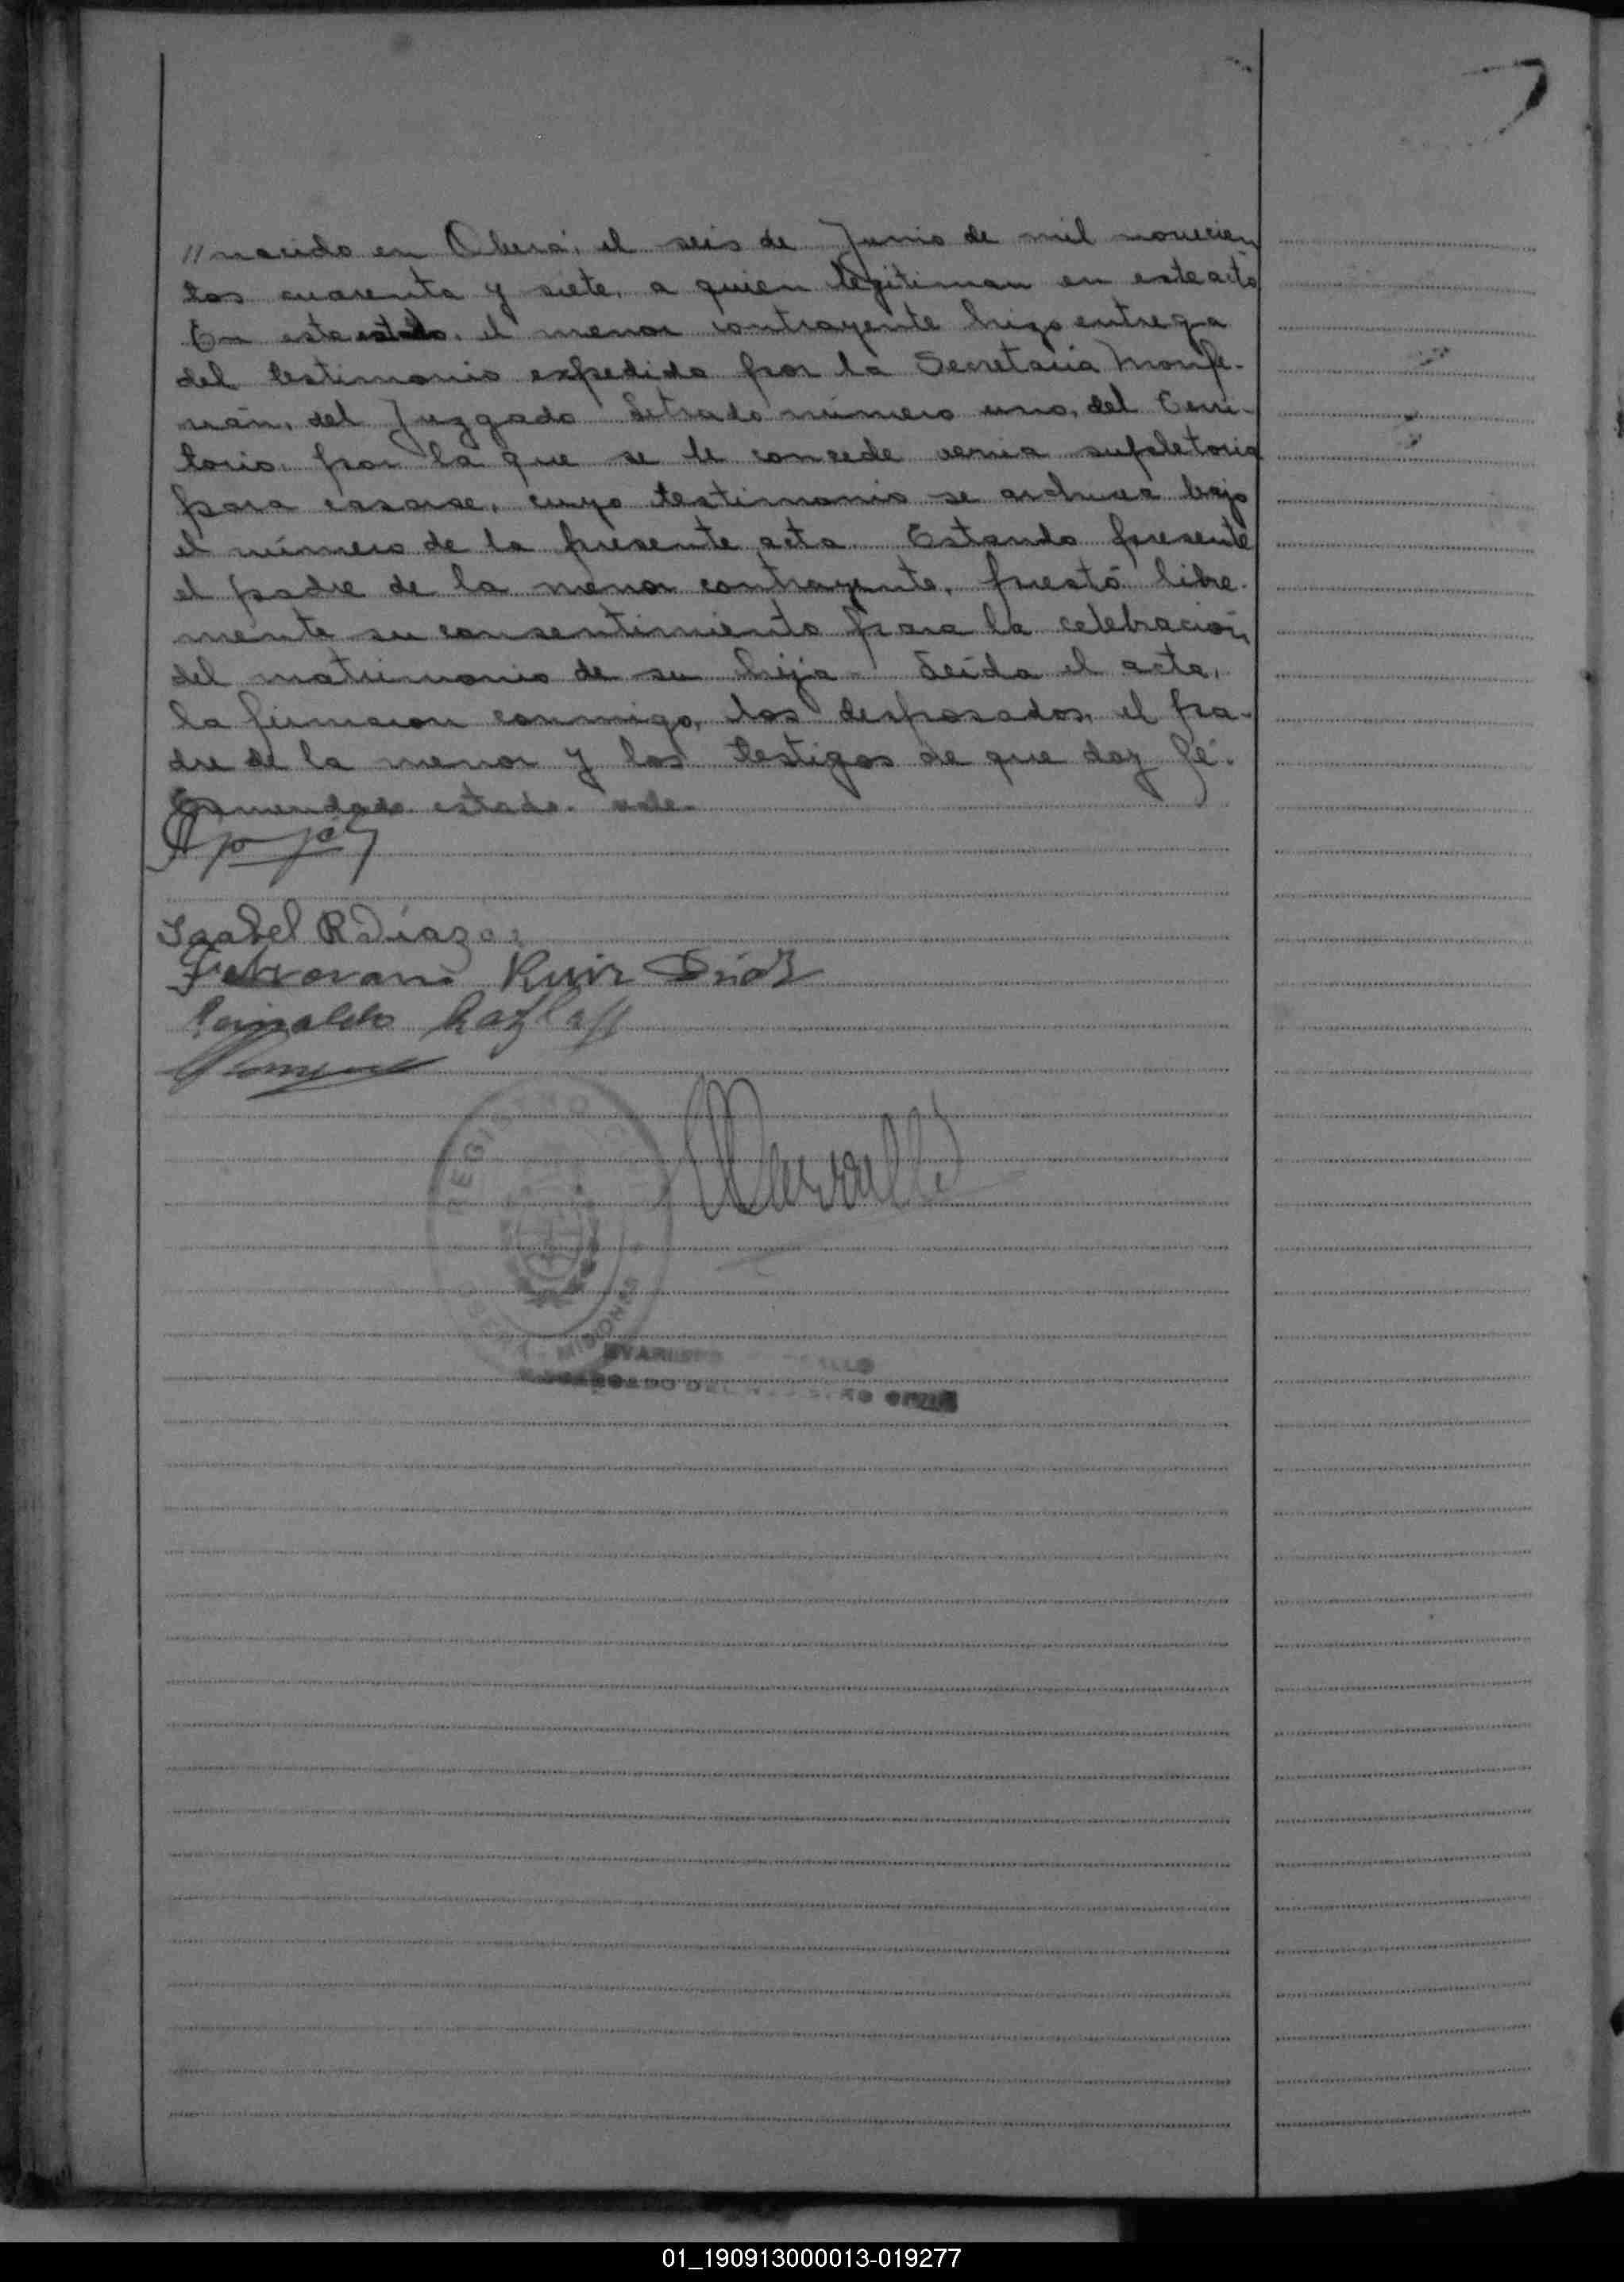 //nacido en Oberá, el seis de Junio de mil novecien
tos cuarenta y siete, a quien legitiman en este acto
En este estado, el menor contrayente hizo entrega
del testimonio expedido por la Secretaria
del Juzgado Letrado número uno, del Terri-
torio, por la que se le concede venia supletoria
para casarse, cuyo testimonio se archiva bajo
el número de la presente acta. Estando presente
el padre de la menor contrayente, prestó libre-
mente su consentimiento para la celebración
del matrimonio de su hija. Leída el acta,
la firmaron conmigo, los desposados, el pa-
dre de la menor y los testigos de que doy fé.
Enmendado estado. vale.
Isabel R Díaz
Ruiz Diaz
REGISTRO
MISIONES
01_190913000013-019277